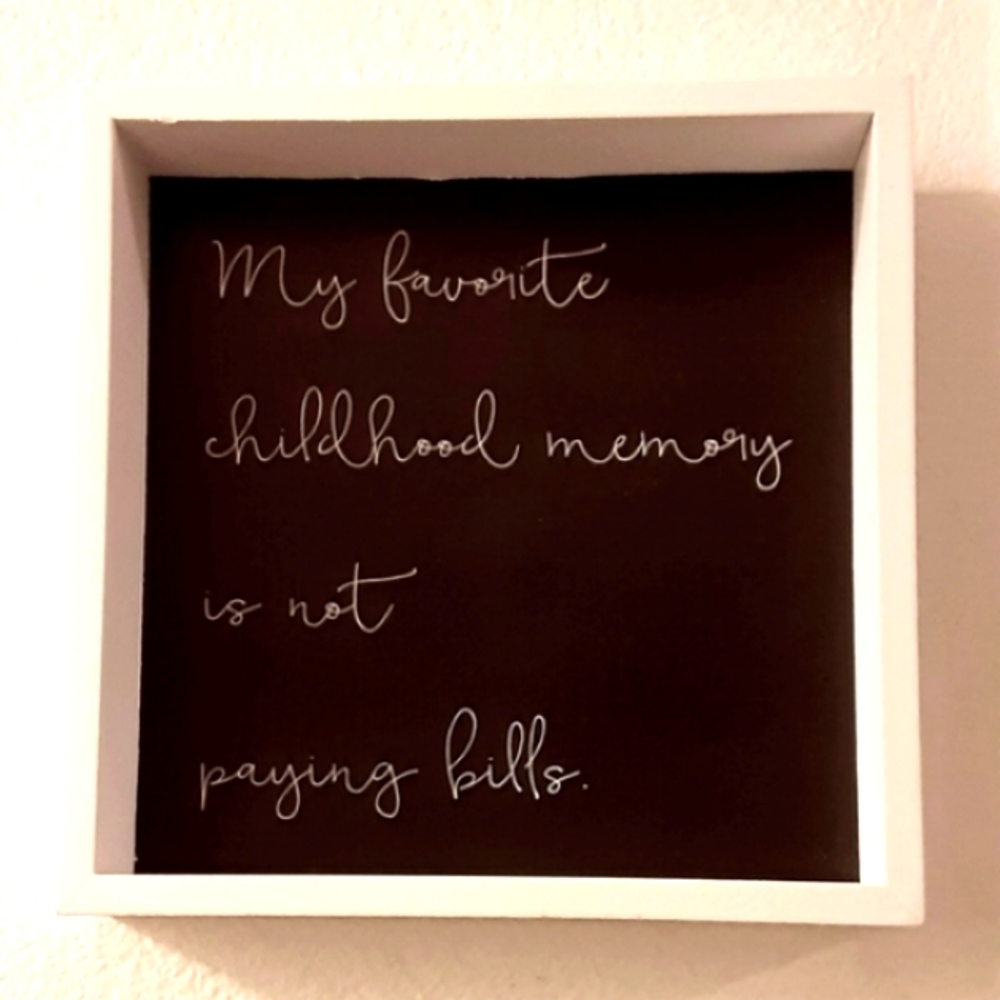 My favorite
childhood memory
is not
paying bills.